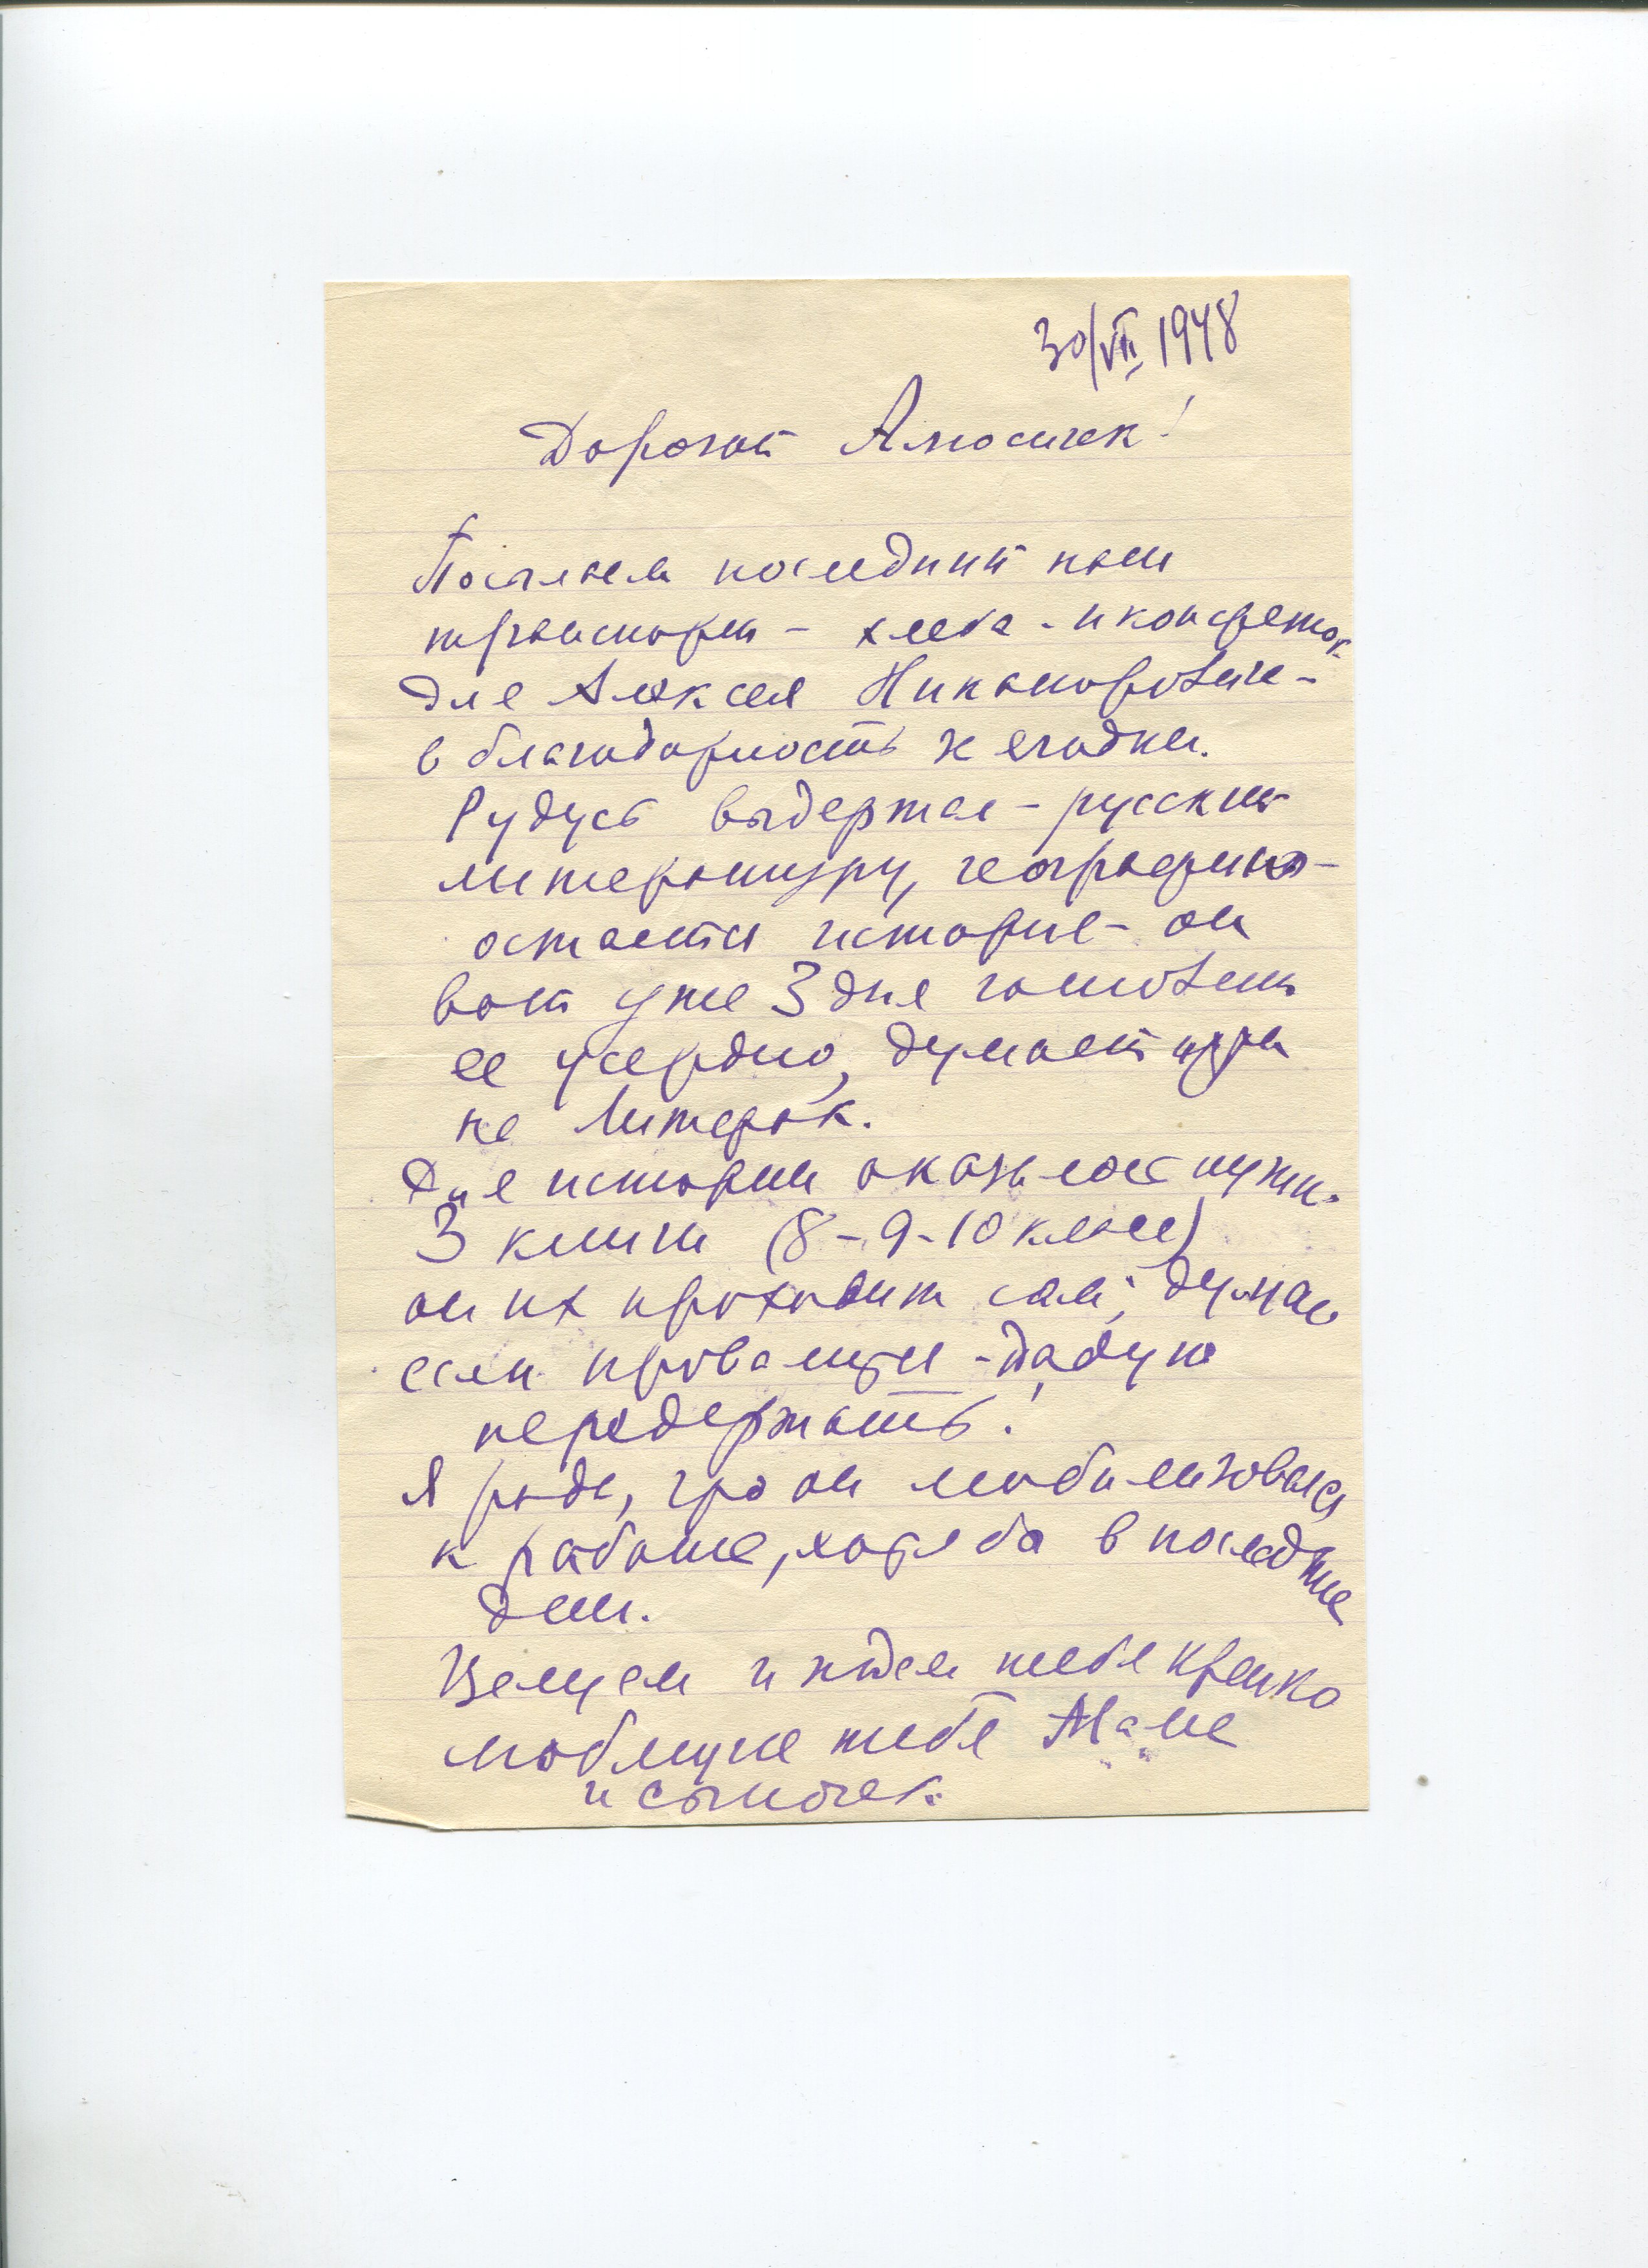 30/VII 1948
Дорогой Амосичек!
Посылаем последний наш
транспорт - хлеба - и конфеток
для Алексея Никаноровича -
в благодарность
Рудусь выдержал - русский
литературу, географию -
остается история - он
вот уже 3 дня готовит
ее усердно, думает
на
Для истории оказалось нужны
3 книги (8-9-10 класс)
он их проходит сам, думаю
если провалится - дадут
передержать!
Я рада, что он мобилизовался
к работе, хотя бы в последние
дни.
Целуем и ждем тебя крепко
любящие тебя Мама
и сыночек.